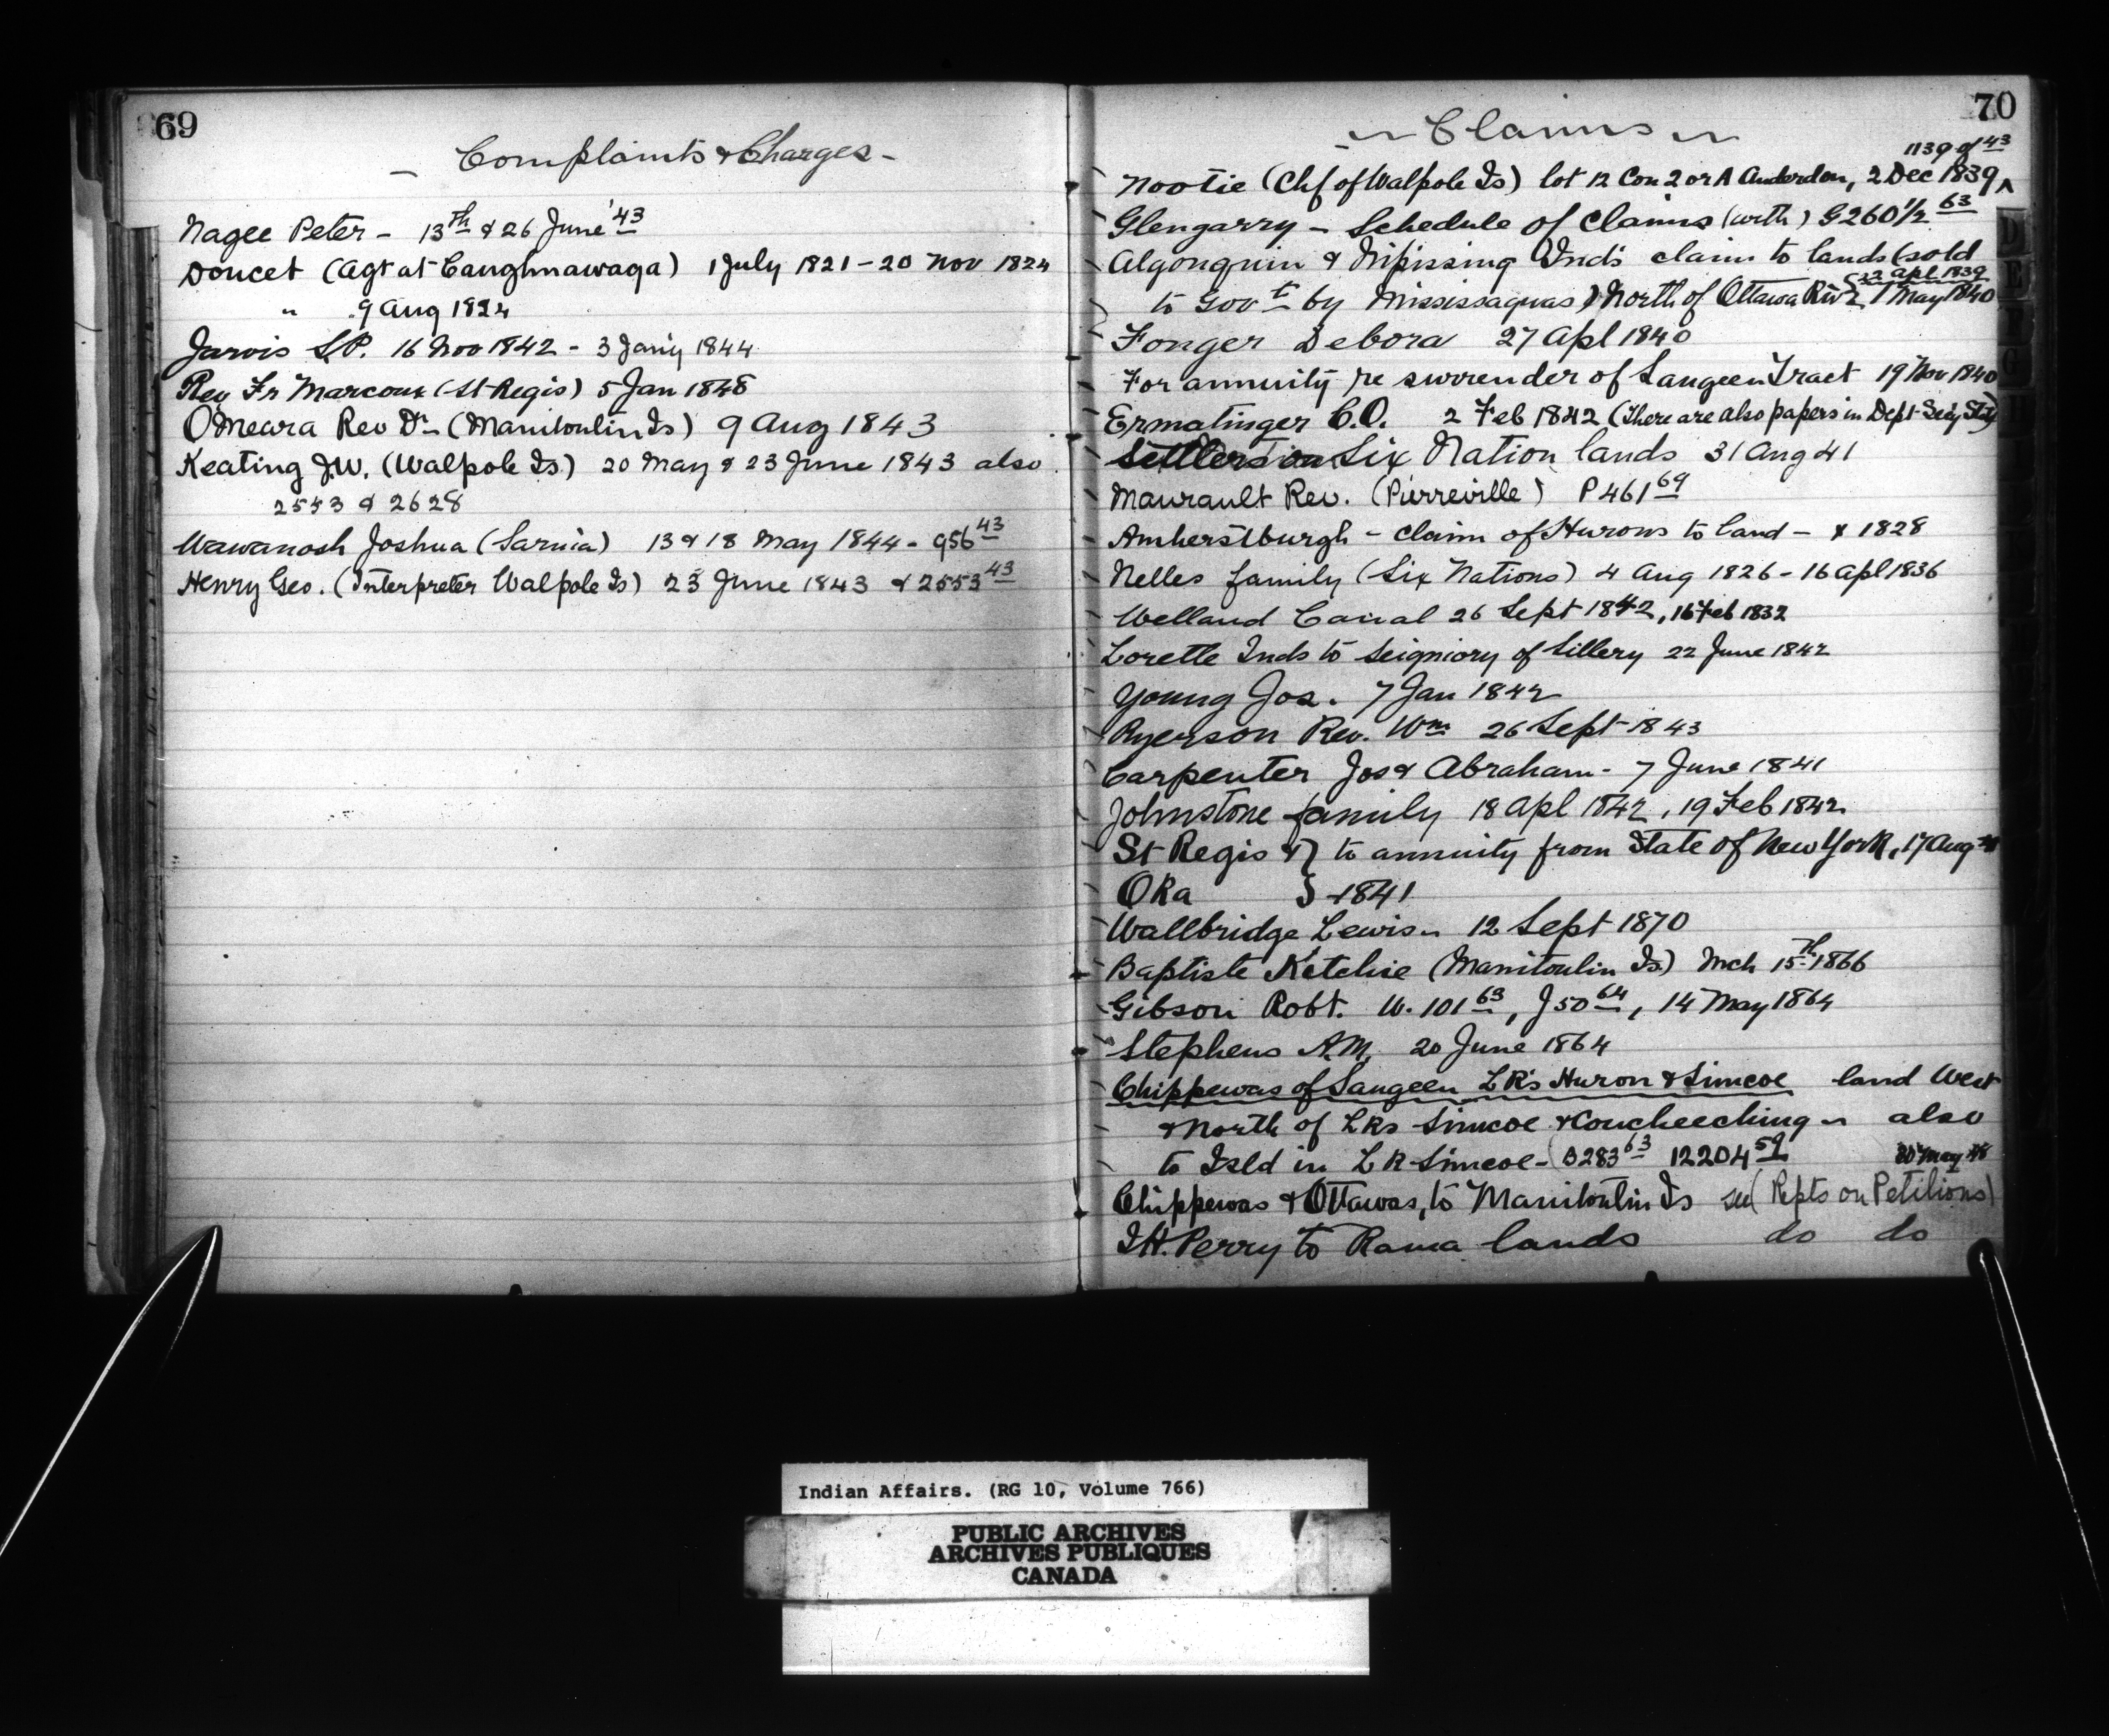 69
- Complaints & Charges -
Nagee Peter - 13th & 26 June '43
Doucet (Agt at Caughnawaga) 1 July 1821 - 20 Nov 1824
" 9 Aug 1824
Jarvis S.P. 16 Nov 1842 - 3 Jany 1844
Rev Fr Marcoux (St Regis) 5 Jan 1848
O'Meara Rev Dr - (Manitoulin Is) 9 Aug 1843
Keating J.W. (Walpole Is.) 20 May & 23 June 1843 also
2553 & 2628
Wawanosh Joshua (Sarnia) 13 & 18 May 1844 - 956 43
Henry Geo. (Interpreter Walpole Is) 23 June 1843 & 2553 43
70
~ Claims ~
1139 of 43
Nootie (Chf of Walpole Is) lot 12 Con 2 or A Anderdon, 2 Dec 1839
Glengarry - Schedule of Claims (with) G260½ 63
Algonquin & Nipissing Inds claim to lands (sold
22 Apl 1839
to Govt by Mississaguas) North of Ottawa Riv 1 May 1840
Fonger Debora 27 Apl 1840
For annuity re surrender of Saugeen Tract 19 Nov 1840
Ermatinger C.O. 2 Feb 1842 (There are also papers in Dept Secy State)
Settlers on Six Nation lands 31 Aug 41
Maurault Rev. (Pierreville) P 461 69
Amherstburgh - Claim of Hurons to land - & 1828
Nelles family (Six Nations) 4 Aug 1826 - 16 Apl 1836
Welland Canal 26 Sept 1842, 16 Feb 1832
Lorette Inds to Seigniory of Sillery 22 June 1842
Young Jos. 7 Jan 1842
Ryerson Rev. Wm 26 Sept 1843
Carpenter Jos & Abraham - 7 June 1841
Johnstone family 18 Apl 1842, 19 Feb 1842
St Regis & } to annuity from State of New York, 17 Aug
Oka } 1841
Wallbridge Lewis - 12 Sept 1870
Baptiste Ketchie (Manitoulin Is.) Mch 15th 1866
Gibson Robt. W. 101 63, J50 64, 14 May 1864
Stephens A.M. 20 June 1864
Chippewas of Saugeen LKs Huron & Simcoe land West
& North of LKs Simcoe & Couchecching - also
to Isld in LK Simcoe - B283 63 12204 59 20 May 48
Chippewas & Ottawas, to Manitoulin Is see (Repts on Petitions)
J.H. Perry to Rama lands do do
D
E
F
G
Indian Affairs. (RG 10, Volume 766)
PUBLIC ARCHIVES
ARCHIVES PUBLIQUES
CANADA